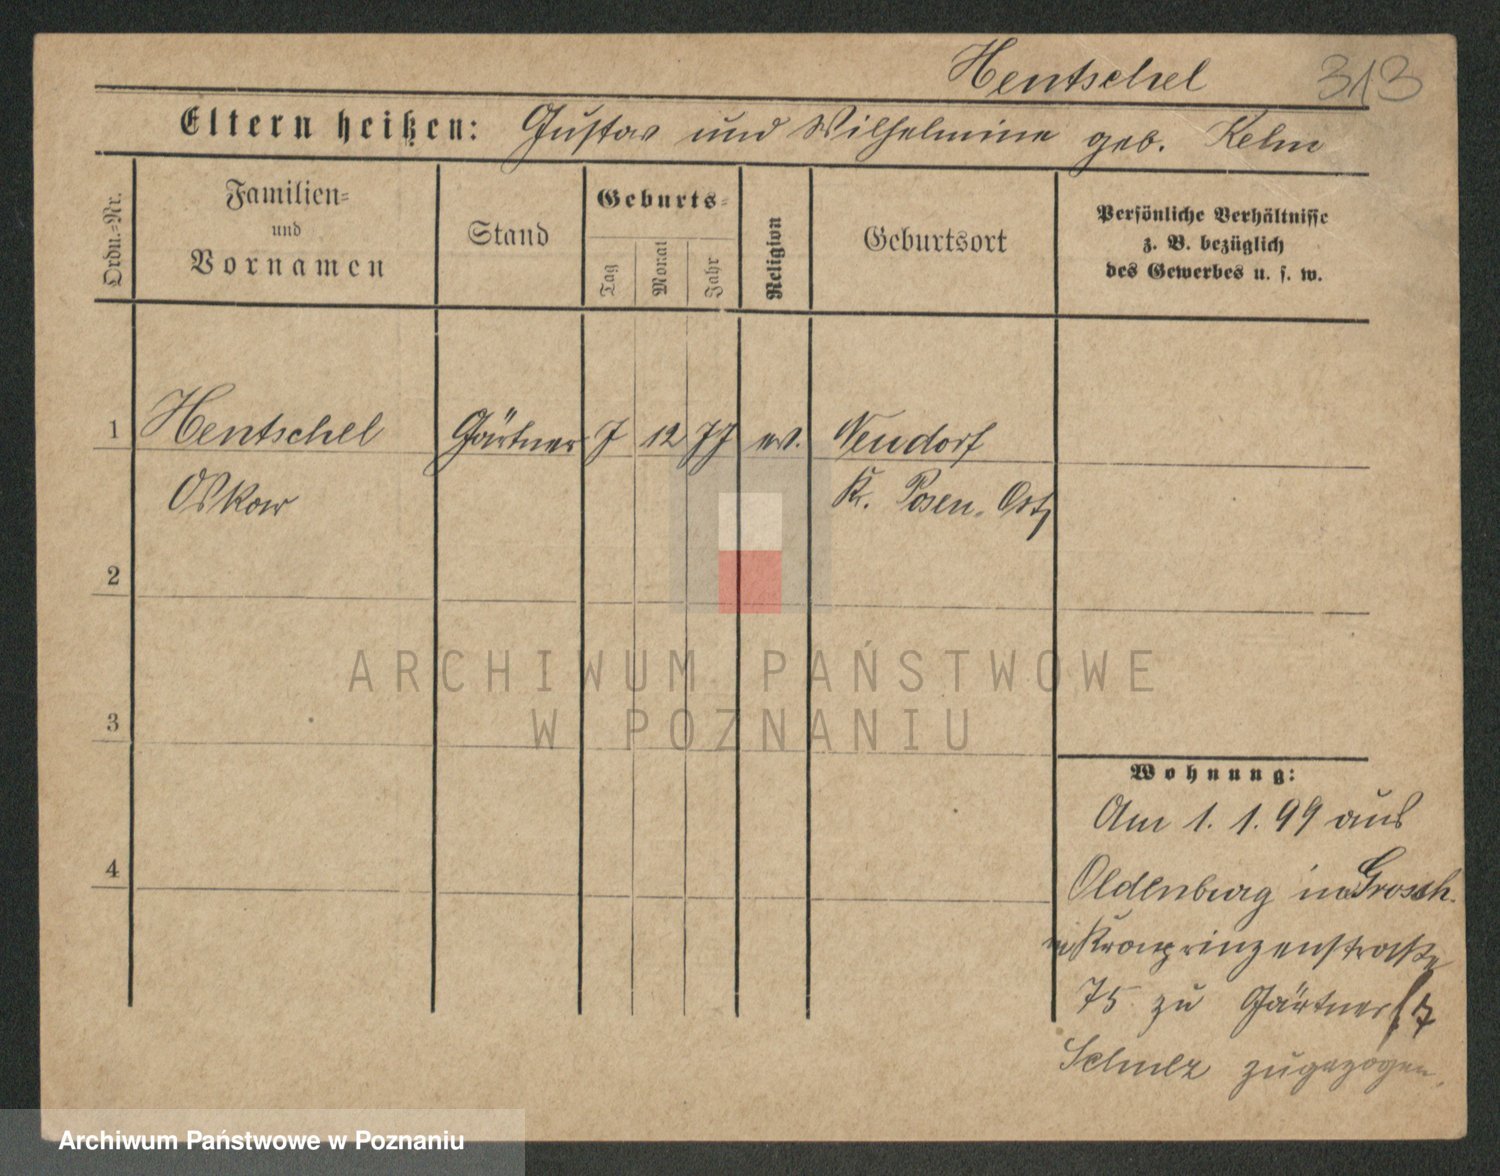 Hentschel 313
Eltern heißen: Gustav und Wilhelmine geb. Kelm
Ordn.-Nr.
Familien-
und
Vornamen
Stand
Geburts-
Tag
Monat
Jahr
Religion
Geburtsort
Persönliche Verhältnisse
z. B. bezüglich
des Gewerbes u. s. w.
1 Hentschel Gärtner 7 12 77 ev. Neudorf
Oskar Kr. Posen-Ost
2
3
4
Wohnung:
Am 1. 1. 99 aus
Oldenburg in Grossh.
Kronprinzenstraße
75 zu Gärtner
Schulz zugezogen.
ARCHIWUM PAŃSTWOWE
W POZNANIU
Archiwum Państwowe w Poznaniu